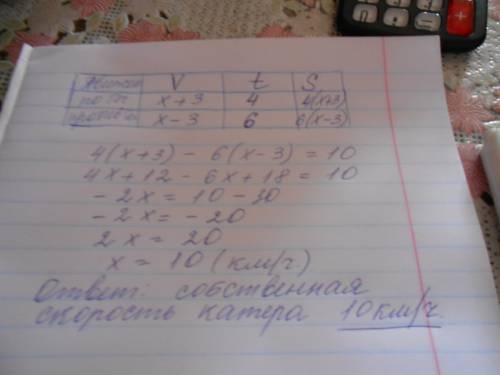 V t S
по теч x+3 4 4(x+3)
x-3 6 6(x-3)
4(x+3) - 6(x-3) = 10
4x+12 - 6x+18 = 10
-2x = 10-30
-2x = -20
2x = 20
x = 10 (км/ч)
Ответ: собственная
скорость катера 10 км/ч.